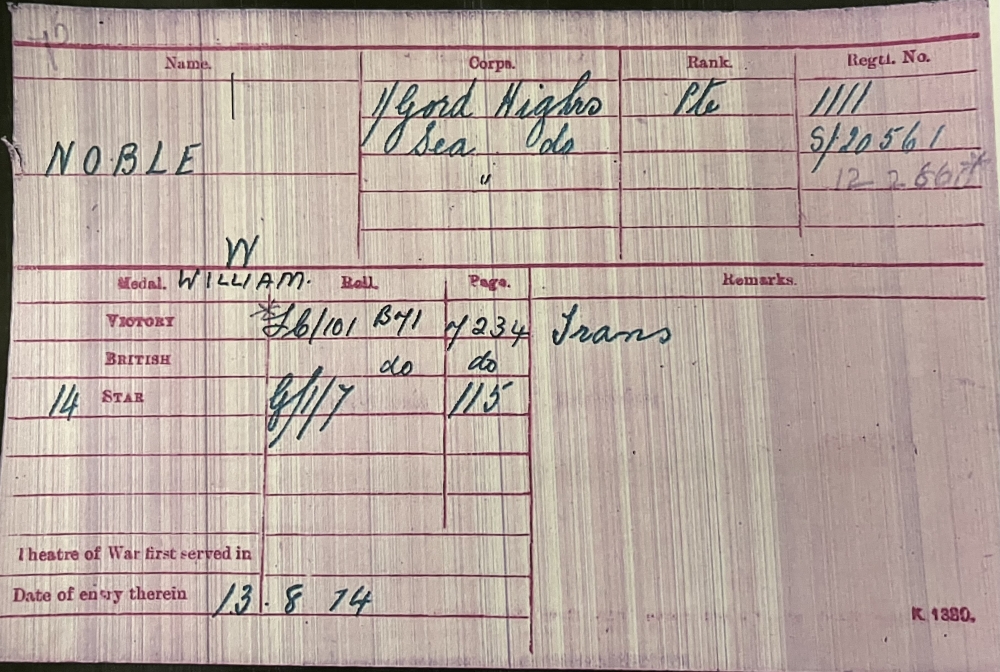 Name. Corps. Rank. Regtl. No.
1/Gord Highrs Pte 1111
Sea do S/20561
NOBLE " 12 2 667*
W
Medal. WILLIAM. Roll. Page. Remarks.
VICTORY *J6/101 B71 7234 Trans
BRITISH do do
14 STAR G/1/7 115
Theatre of War first served in
Date of entry therein 13. 8 14
K 1380.